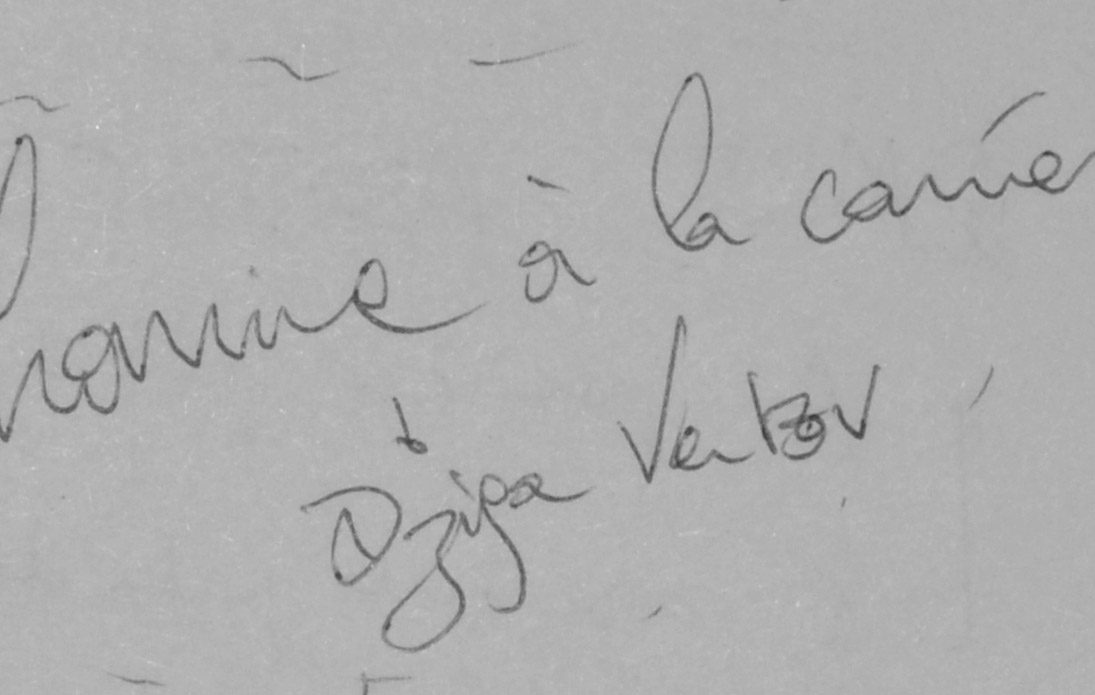 homme à la camé
Dziga Vertov